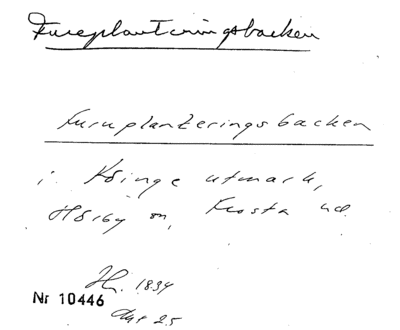 Fureplanteringsbacken
Furuplanteringsbacken
i Köinge utmark,
Hörby sn, Frosta hd.
Hr. 1834
Nr 10446